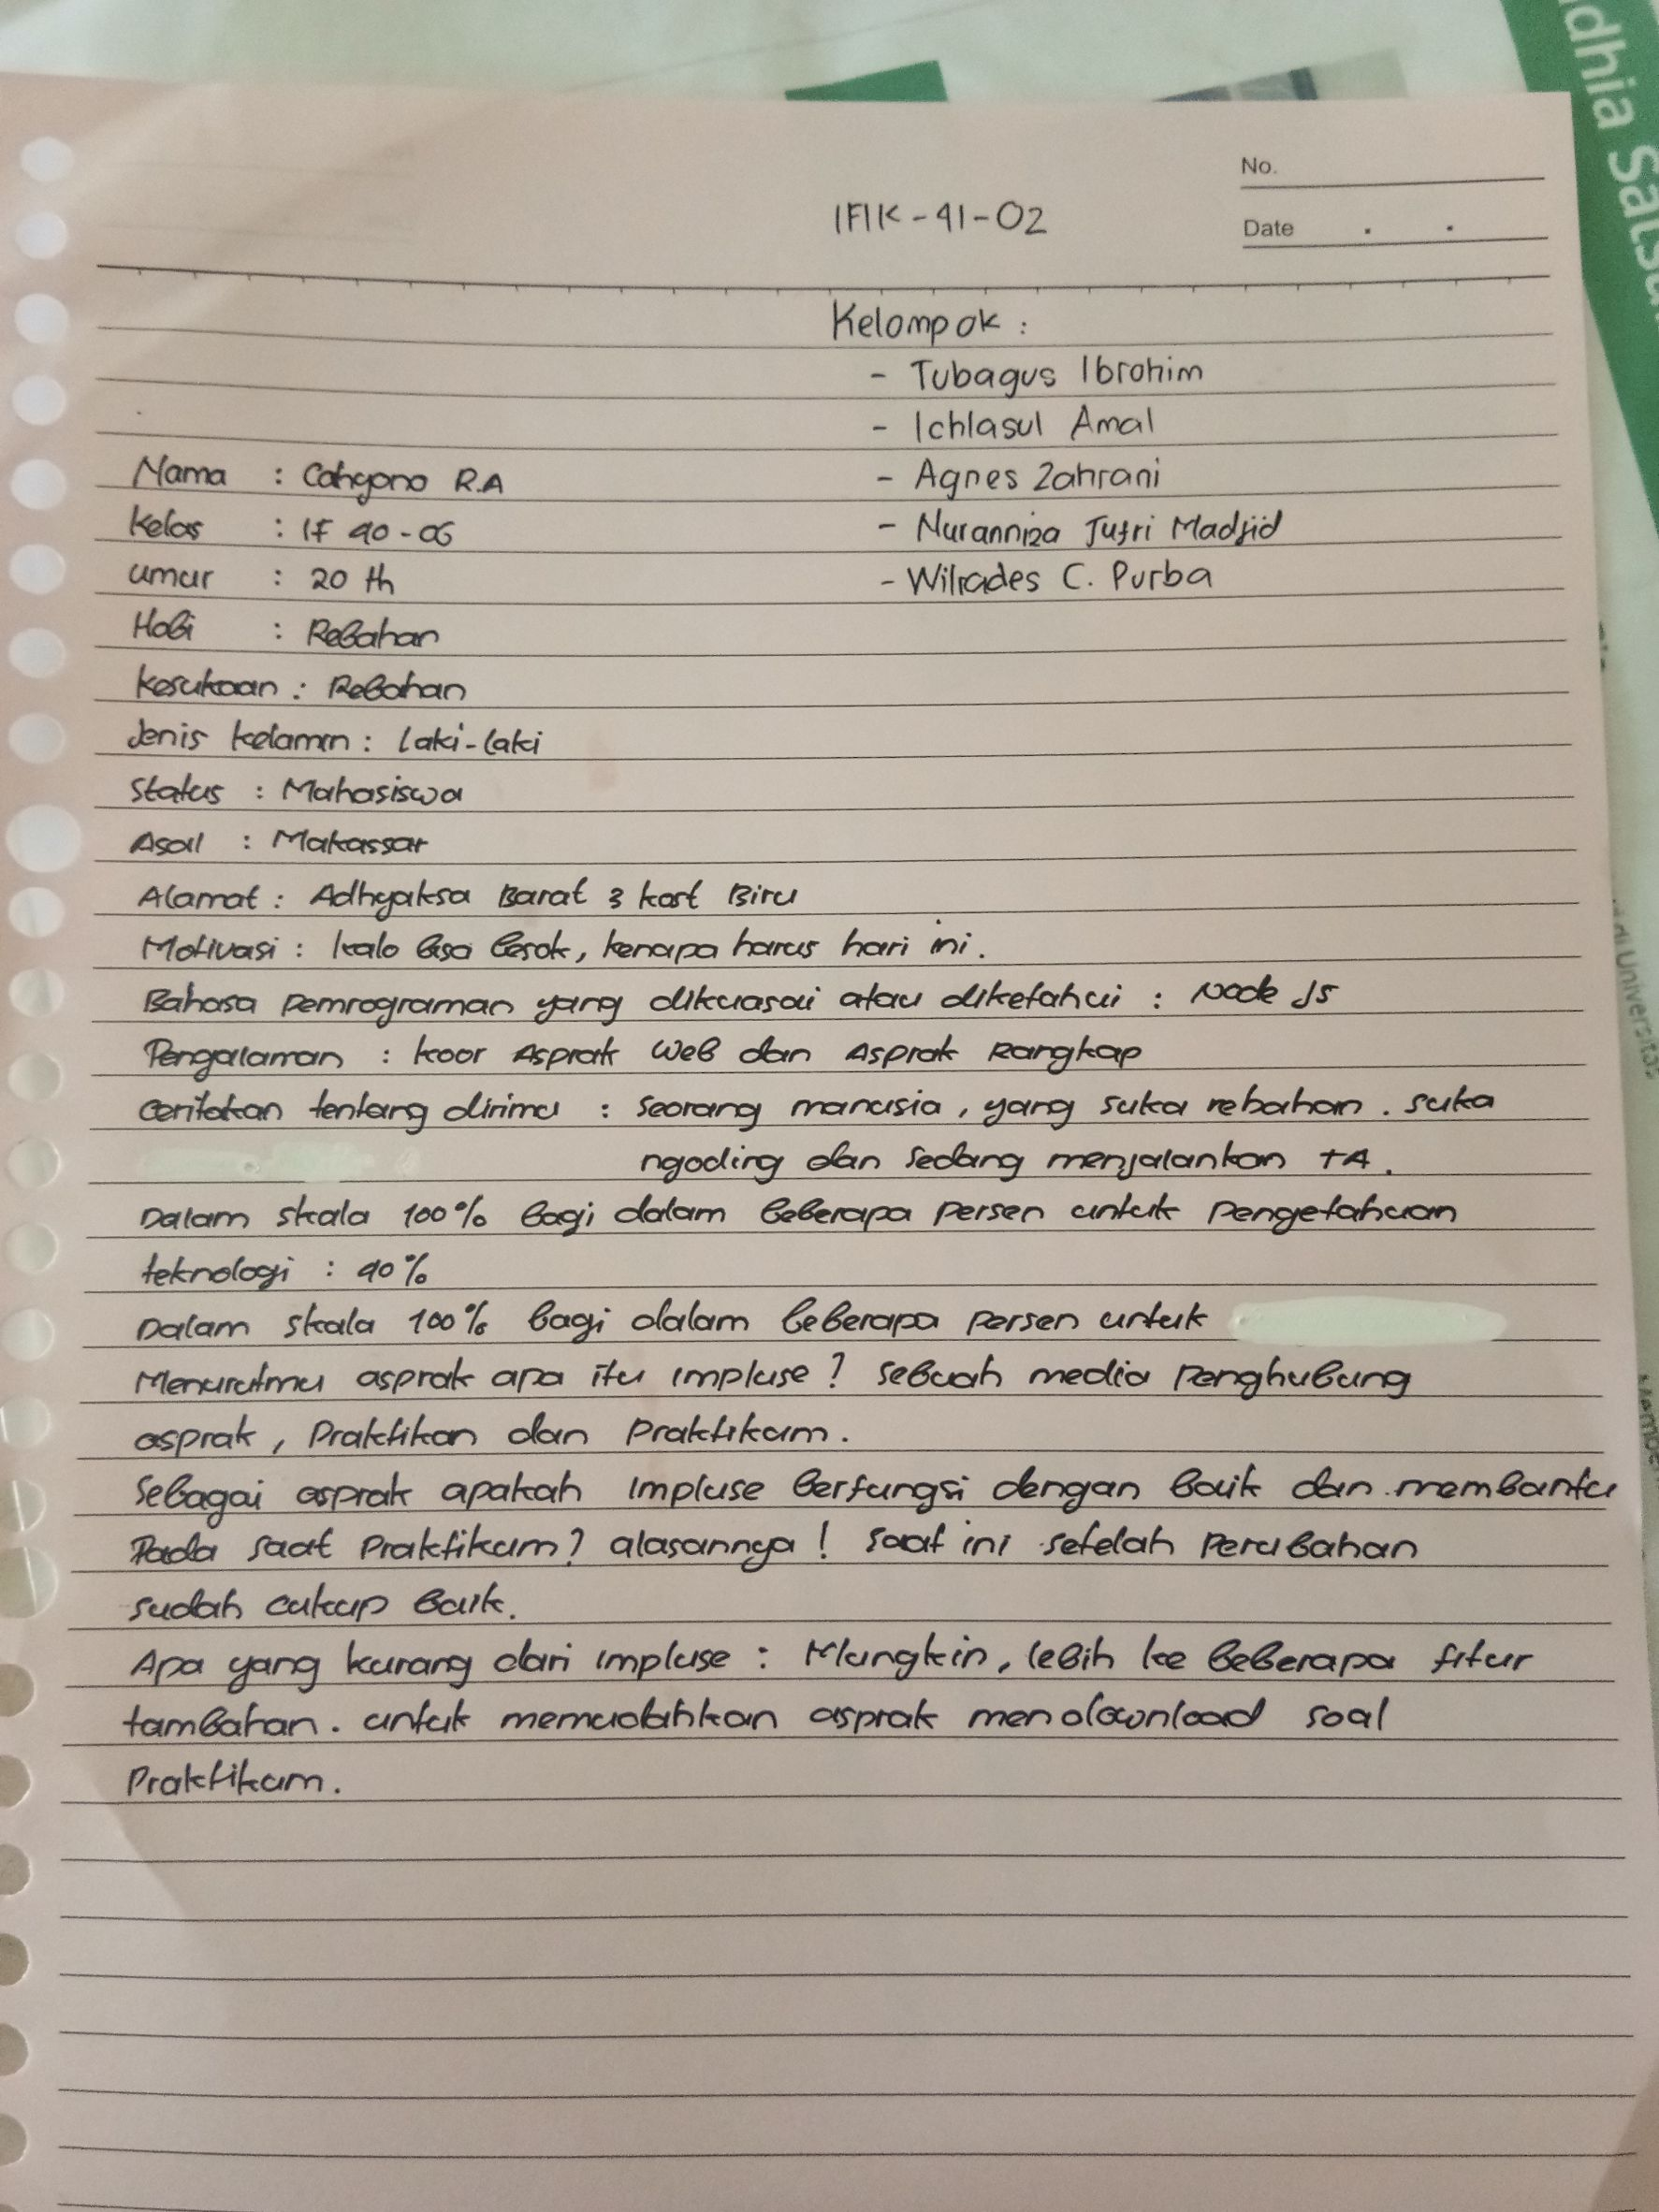 No.
IFIK-41-02
Date . .
Kelompok :
- Tubagus Ibrohim
- Ichlasul Amal
Nama : Cahyono R.A
- Agnes Zahrani
Kelas : IF 40-06
- Nuranniza Jufri Madjid
umur : 20 th
- Wilrades C. Purba
Hobi : Rebahan
Kesukaan : Rebahan
Jenis kelamin : laki-laki
Status : Mahasiswa
Asal : Makassar
Alamat : Adhyaksa Barat 3 kost Biru
Motivasi : kalo bisa besok, kenapa harus hari ini.
Bahasa pemrograman yang dikuasai atau diketahui : Node JS
Pengalaman : koor Asprak Web dan Asprak Rangkap
Ceritakan tentang dirimu : Seorang manusia, yang suka rebahan. suka
ngoding dan sedang menjalankan TA.
Dalam skala 100% bagi dalam beberapa persen untuk pengetahuan
teknologi : 90%
Dalam skala 100% bagi dalam beberapa persen untuk
Menurutmu asprak apa itu impluse? Sebuah media penghubung
asprak, Praktikan dan Praktikum.
Sebagai asprak apakah Impluse berfungsi dengan baik dan membantu
Pada saat Praktikum? alasannya! Saat ini setelah perubahan
sudah cukup baik.
Apa yang kurang dari impluse : Mungkin, lebih ke beberapa fitur
tambahan. untuk memudahkan asprak mendownload soal
Praktikum.
dhia Satsu
Universitas